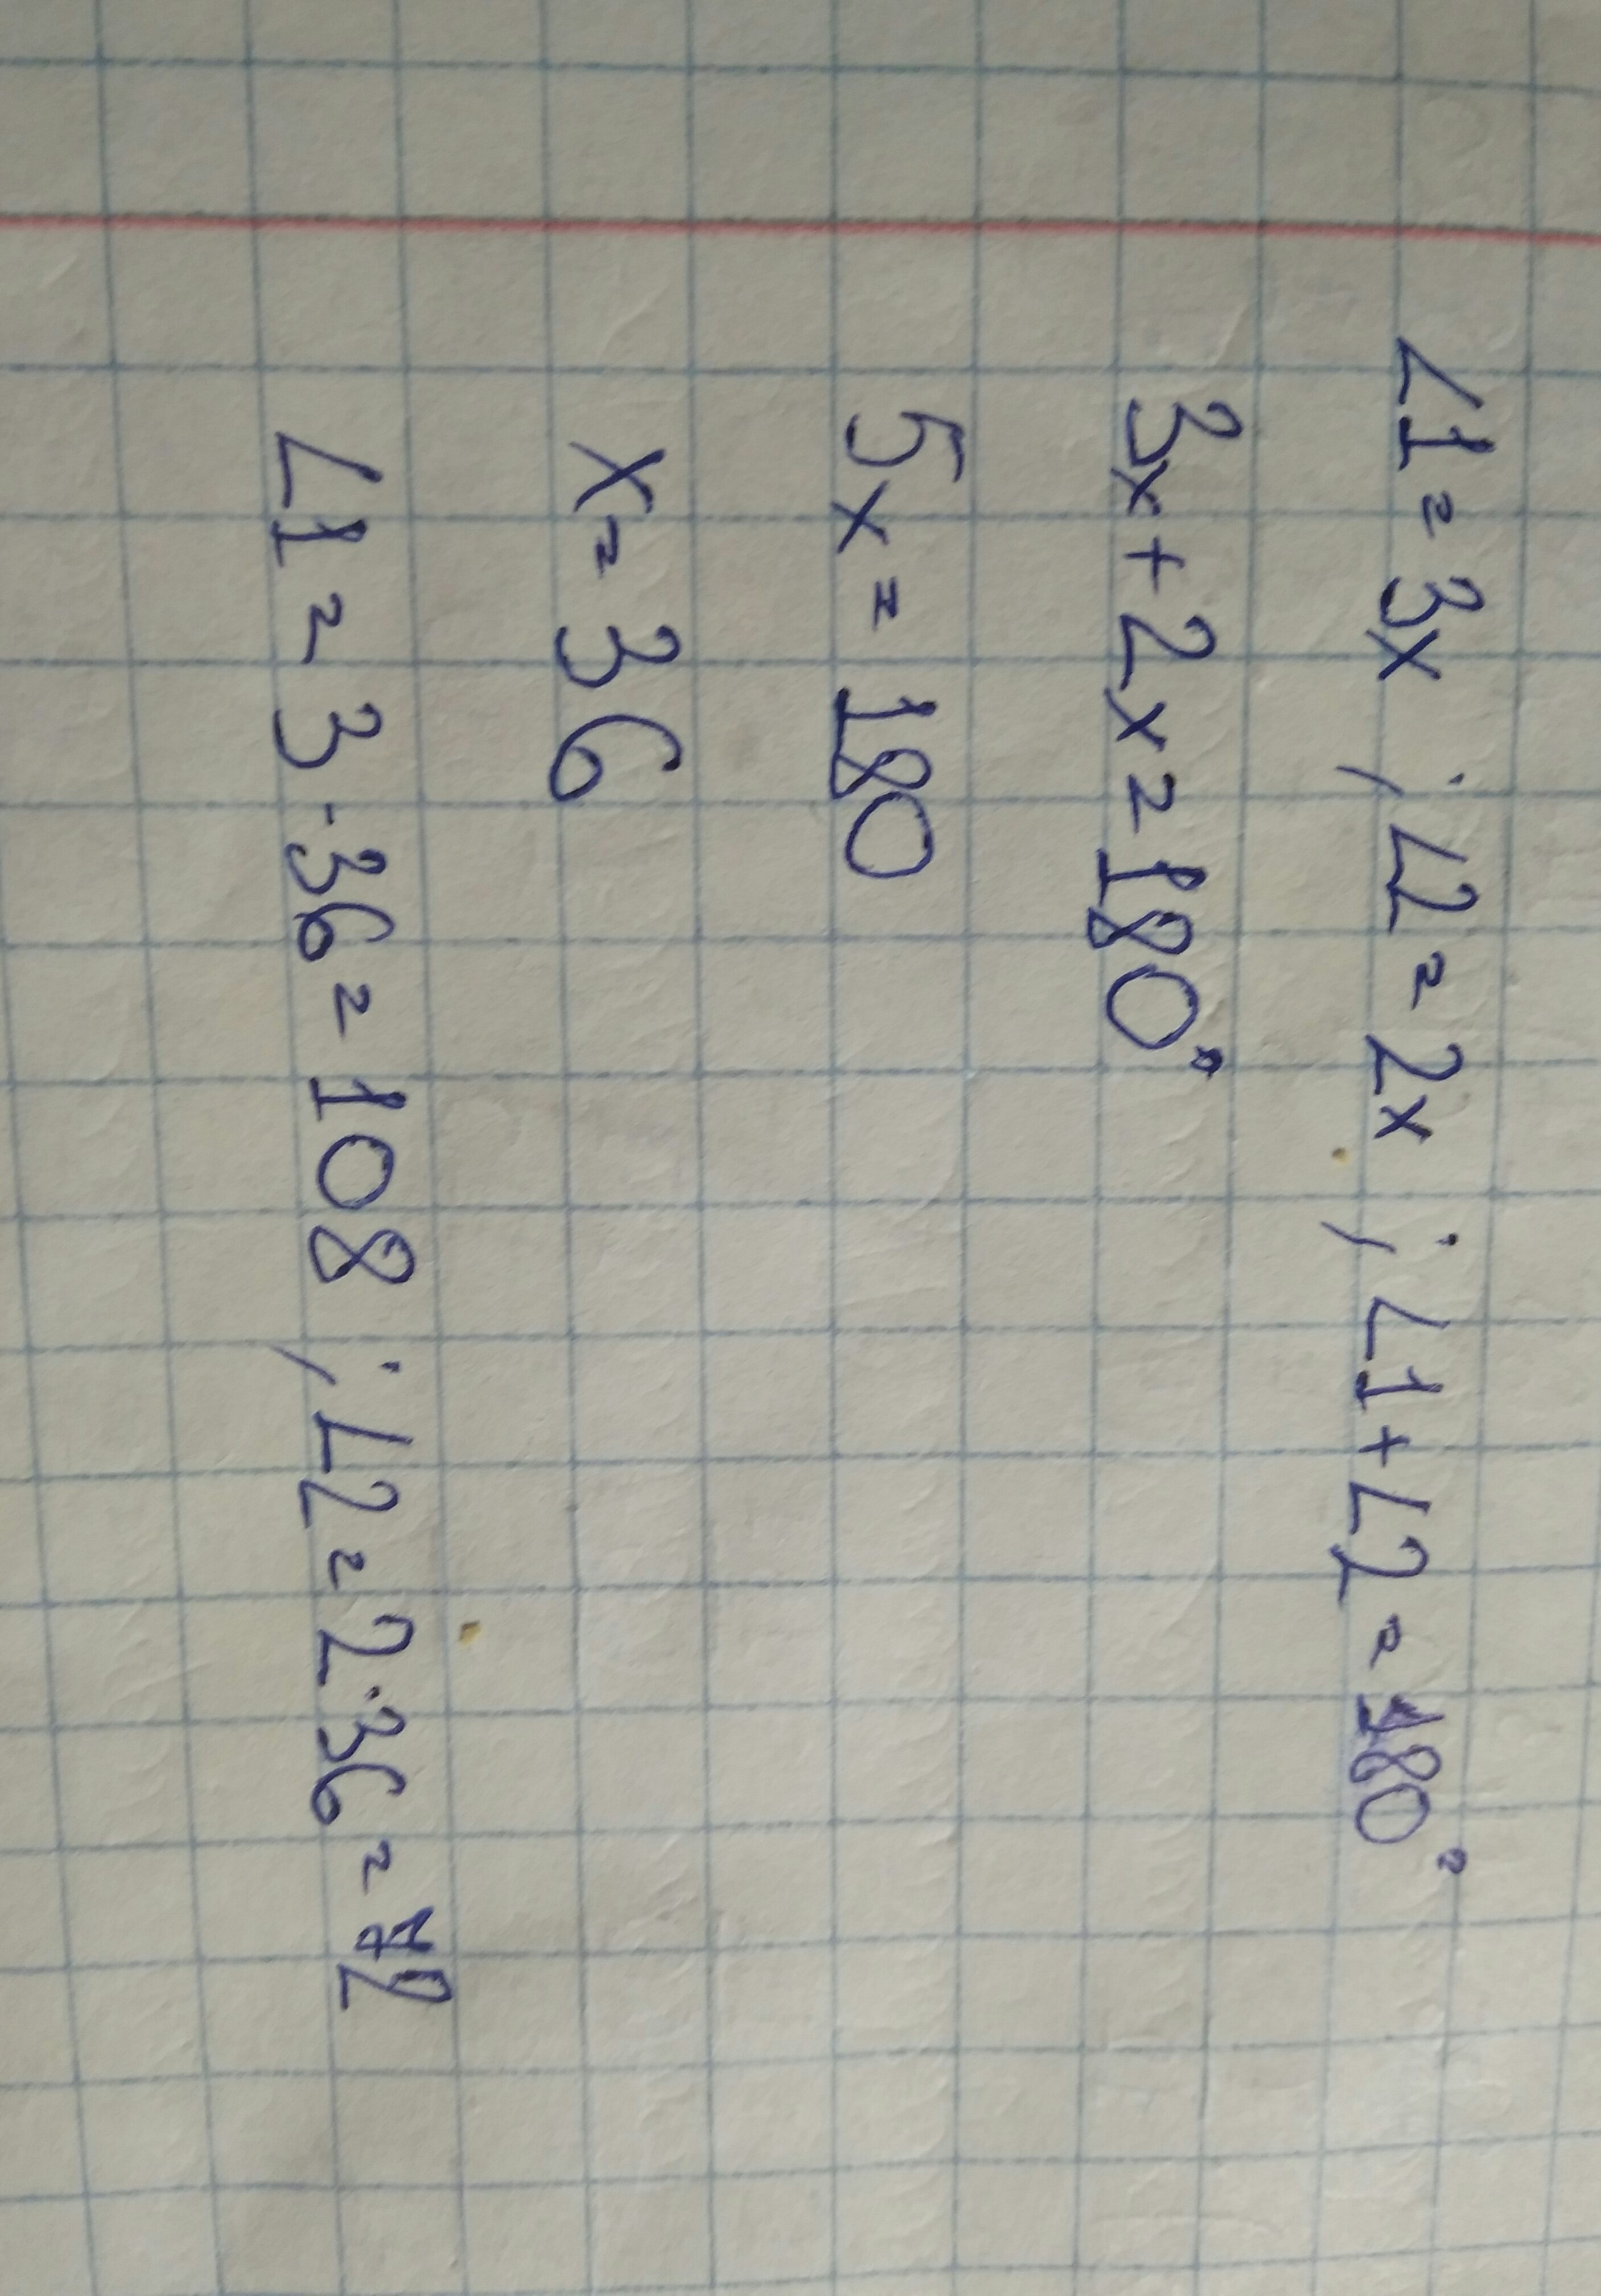 ∠1 = 3x ; ∠2 = 2x ; ∠1 + ∠2 = 180°
3x + 2x = 180°
5x = 180
x = 36
∠1 = 3 · 36 = 108 ; ∠2 = 2 · 36 = 72